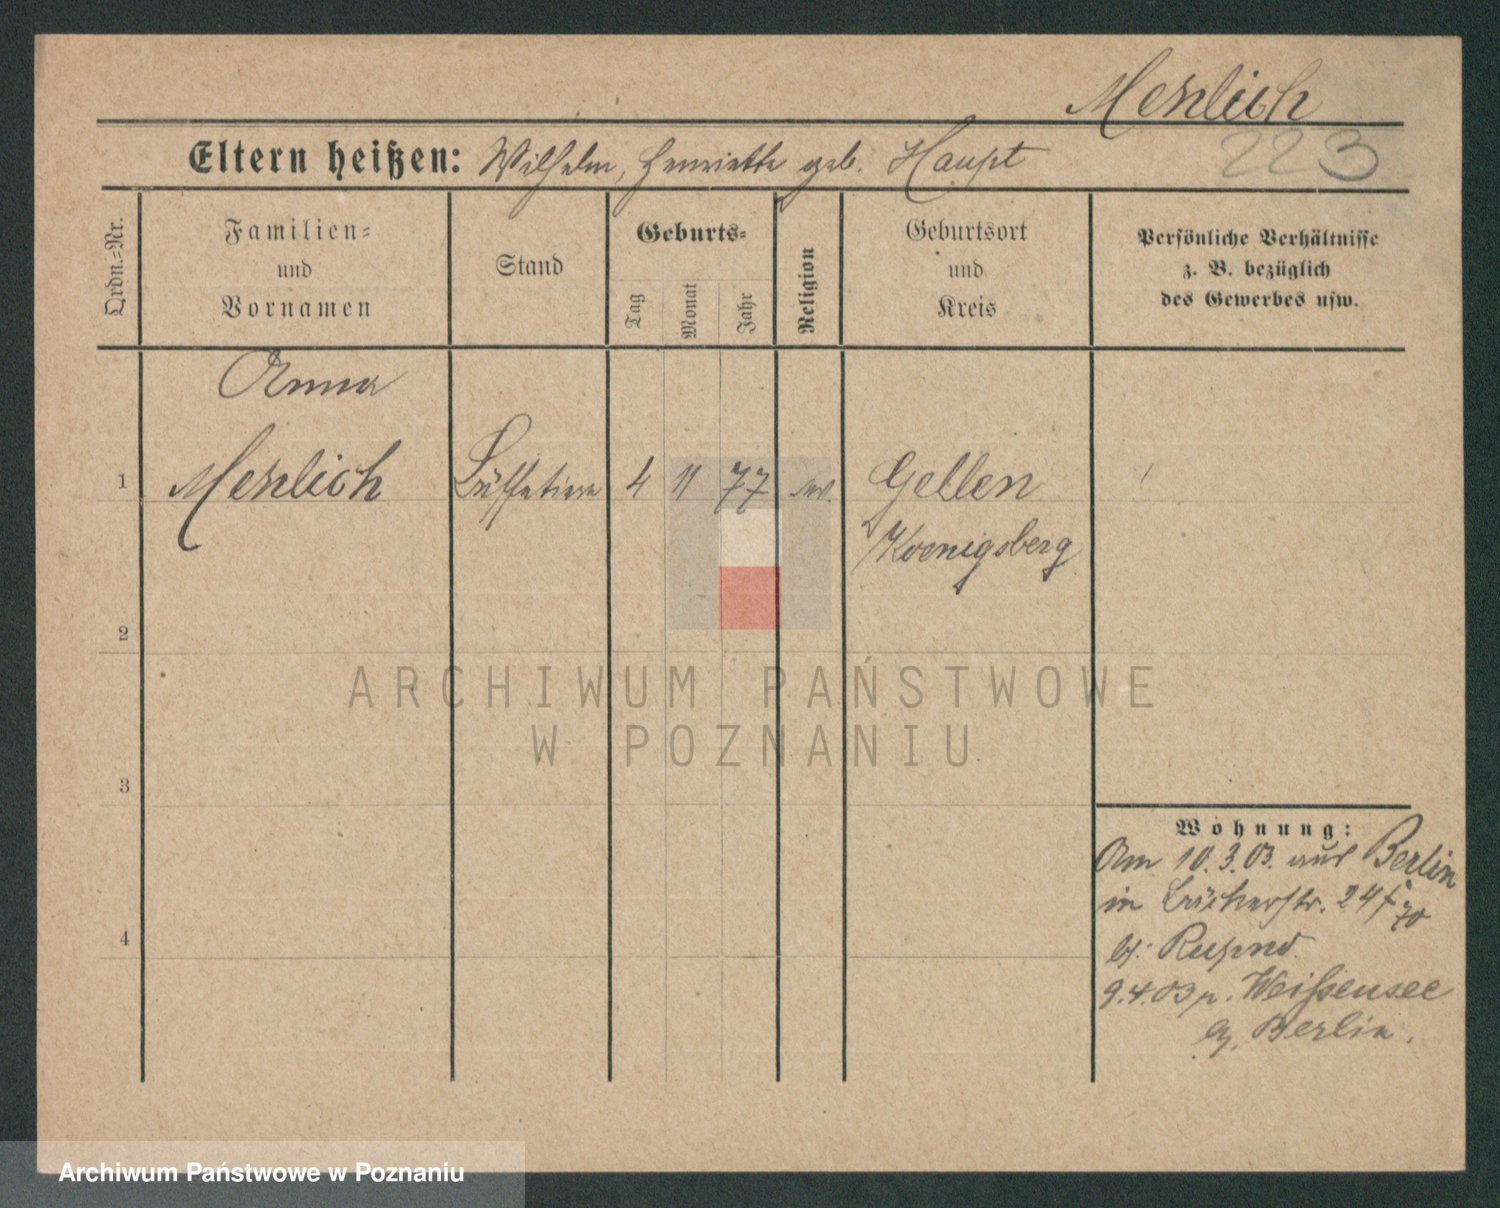 Mehlich
223
Eltern heißen: Wilhelm, Henriette geb. Haupt
Ordn.-Nr.
Familien-
und
Vornamen
Stand
Geburts-
Tag
Monat
Jahr
Religion
Geburtsort
und
Kreis
Persönliche Verhältnisse
z. B. bezüglich
des Gewerbes usw.
Anna
1 Mehlich Büffetiere 4 11 77 ev. Gellen
Koenigsberg
2
3
4
Wohnung:
Am 10.3.03. aus Berlin
in Bäckerstr. 24
b:
9.4.03 n. Weißensee
b. Berlin.
ARCHIWUM PAŃSTWOWE
W POZNANIU
Archiwum Państwowe w Poznaniu